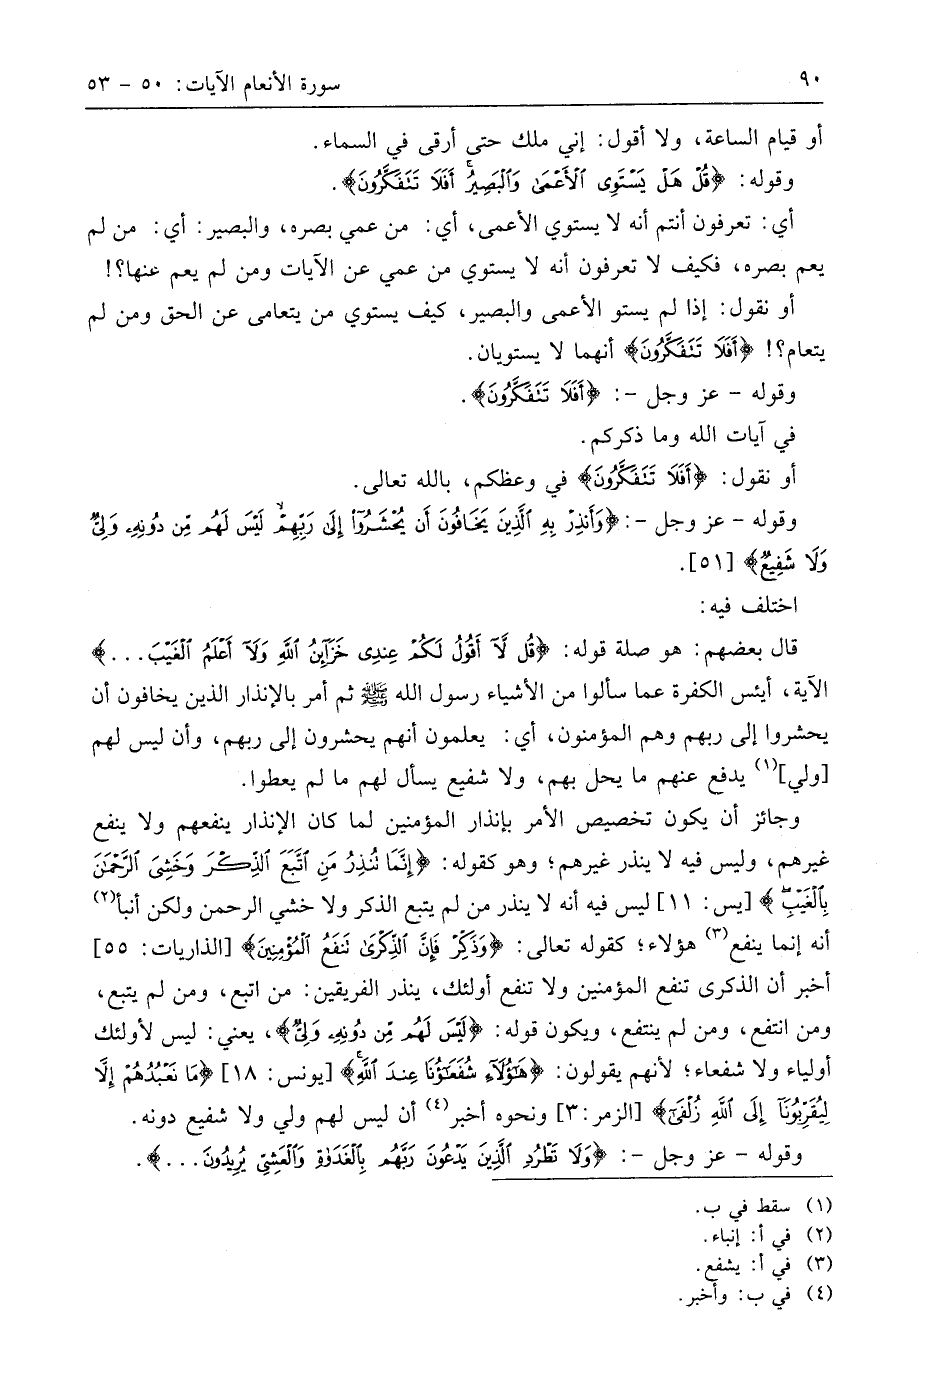 ٩٠
سورة الأنعام الآيات: ٥٠ - ٥٣
أو قيام الساعة، ولا أقول: إني ملك حتى أرقى في السماء.
وقوله: ﴿قُلْ هَلْ يَسْتَوِى ٱلْأَعْمَىٰ وَٱلْبَصِيرُۚ أَفَلَا تَتَفَكَّرُونَ﴾.
أي: تعرفون أنتم أنه لا يستوي الأعمى، أي: من عمي بصره، والبصير: أي: من لم
يعم بصره، فكيف لا تعرفون أنه لا يستوي من عمي عن الآيات ومن لم يعم عنها؟!
أو نقول: إذا لم يستو الأعمى والبصير، كيف يستوي من يتعامى عن الحق ومن لم
يتعام؟! ﴿أَفَلَا تَتَفَكَّرُونَ﴾ أنهما لا يستويان.
وقوله - عز وجل -: ﴿أَفَلَا تَتَفَكَّرُونَ﴾.
في آيات الله وما ذكركم.
أو نقول: ﴿أَفَلَا تَتَفَكَّرُونَ﴾ في وعظكم، بالله تعالى.
وقوله - عز وجل -: ﴿وَأَنذِرْ بِهِ ٱلَّذِينَ يَخَافُونَ أَن يُحْشَرُوٓا۟ إِلَىٰ رَبِّهِمْۙ لَيْسَ لَهُم مِّن دُونِهِۦ وَلِىٌّ
وَلَا شَفِيعٌ﴾ [٥١].
اختلف فيه:
قال بعضهم: هو صلة قوله: ﴿قُل لَّآ أَقُولُ لَكُمْ عِندِى خَزَآئِنُ ٱللَّهِ وَلَآ أَعْلَمُ ٱلْغَيْبَ...﴾
الآية، أيئس الكفرة عما سألوا من الأشياء رسول الله ﷺ ثم أمر بالإنذار الذين يخافون أن
يحشروا إلى ربهم وهم المؤمنون، أي: يعلمون أنهم يحشرون إلى ربهم، وأن ليس لهم
[ولي](١) يدفع عنهم ما يحل بهم، ولا شفيع يسأل لهم ما لم يعطوا.
وجائز أن يكون تخصيص الأمر بإنذار المؤمنين لما كان الإنذار ينفعهم ولا ينفع
غيرهم، وليس فيه لا ينذر غيرهم؛ وهو كقوله: ﴿إِنَّمَا تُنذِرُ مَنِ ٱتَّبَعَ ٱلذِّكْرَ وَخَشِىَ ٱلرَّحْمَٰنَ
بِٱلْغَيْبِۖ﴾ [يس: ١١] ليس فيه أنه لا ينذر من لم يتبع الذكر ولا خشي الرحمن ولكن أنبأ(٢)
أنه إنما ينفع(٣) هؤلاء؛ كقوله تعالى: ﴿وَذَكِّرْ فَإِنَّ ٱلذِّكْرَىٰ تَنفَعُ ٱلْمُؤْمِنِينَ﴾ [الذاريات: ٥٥]
أخبر أن الذكرى تنفع المؤمنين ولا تنفع أولئك، ينذر الفريقين: من اتبع، ومن لم يتبع،
ومن انتفع، ومن لم ينتفع، ويكون قوله: ﴿لَيْسَ لَهُم مِّن دُونِهِۦ وَلِىٌّ﴾، يعني: ليس لأولئك
أولياء ولا شفعاء؛ لأنهم يقولون: ﴿هَٰٓؤُلَآءِ شُفَعَٰٓؤُنَا عِندَ ٱللَّهِۚ﴾ [يونس: ١٨] ﴿مَا نَعْبُدُهُمْ إِلَّا
لِيُقَرِّبُونَآ إِلَى ٱللَّهِ زُلْفَىٰٓ﴾ [الزمر:٣] ونحوه أخبر(٤) أن ليس لهم ولي ولا شفيع دونه.
وقوله - عز وجل -: ﴿وَلَا تَطْرُدِ ٱلَّذِينَ يَدْعُونَ رَبَّهُم بِٱلْغَدَوٰةِ وَٱلْعَشِىِّ يُرِيدُونَ...﴾.
(١) سقط في ب.
(٢) في أ: إنباء.
(٣) في أ: يشفع.
(٤) في ب: وأخبر.